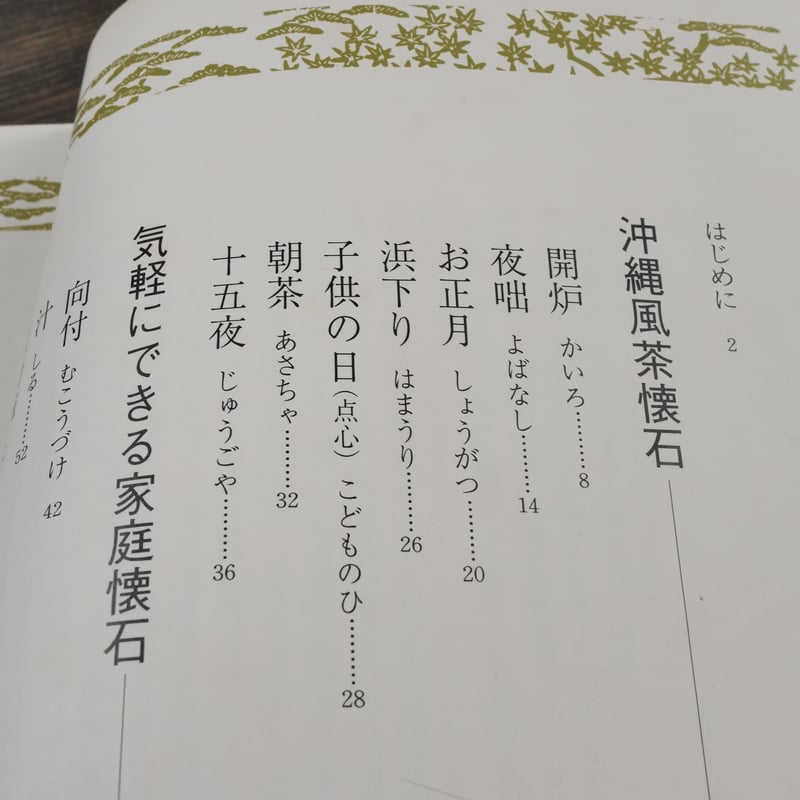 はじめに 2
沖縄風茶懐石
開炉 かいろ………8
夜咄 よばなし………14
お正月 しょうがつ………20
浜下り はまうり………26
子供の日(点心) こどものひ………28
朝茶 あさちゃ………32
十五夜 じゅうごや………36
気軽にできる家庭懐石
向付 むこうづけ 42
汁 しる………52